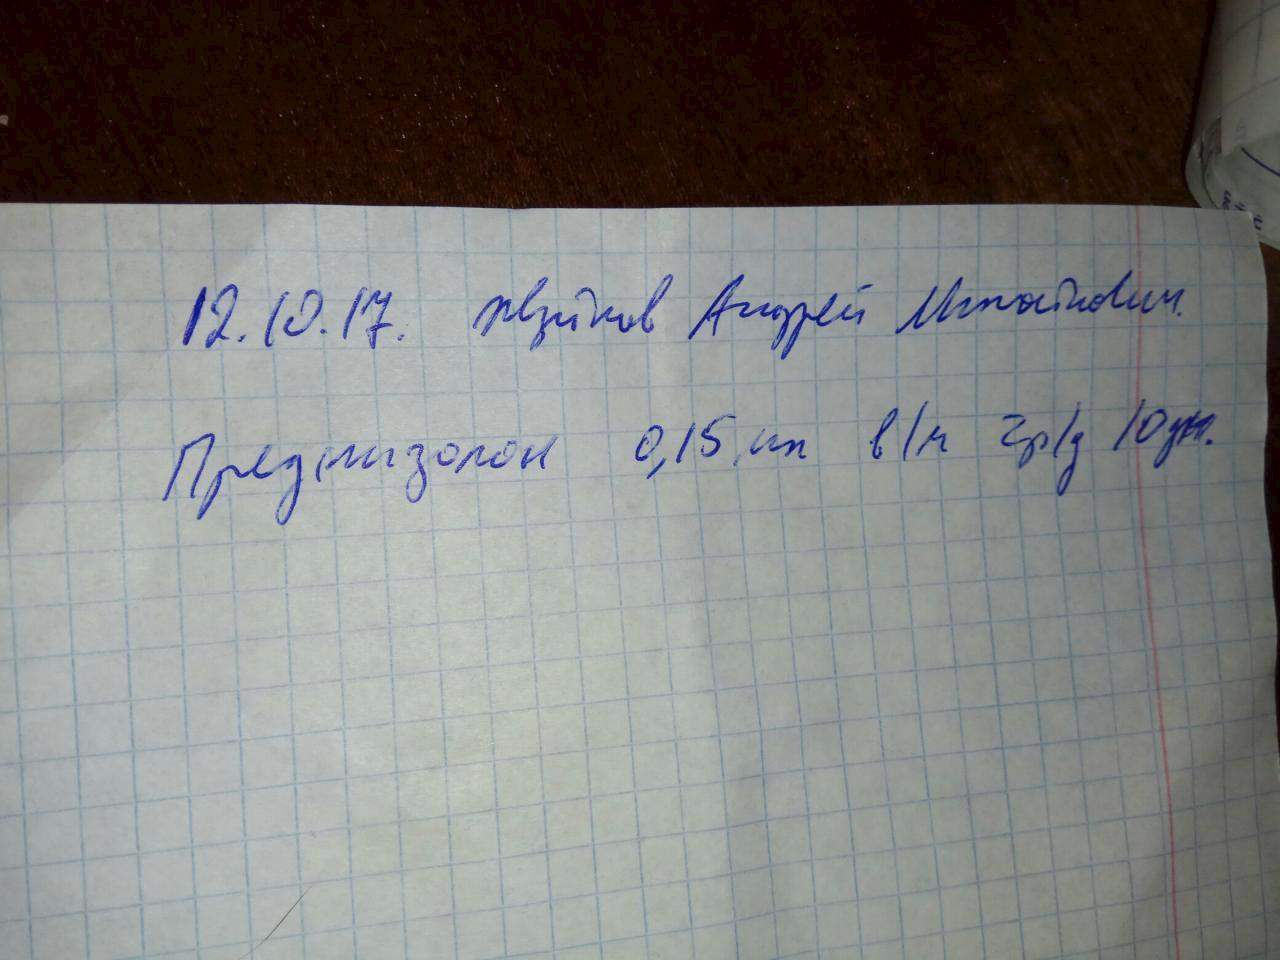 12.10.17. Андрей Михайлович.
Преднизолон 0,15 мл в/м 2р/д 10 дн.